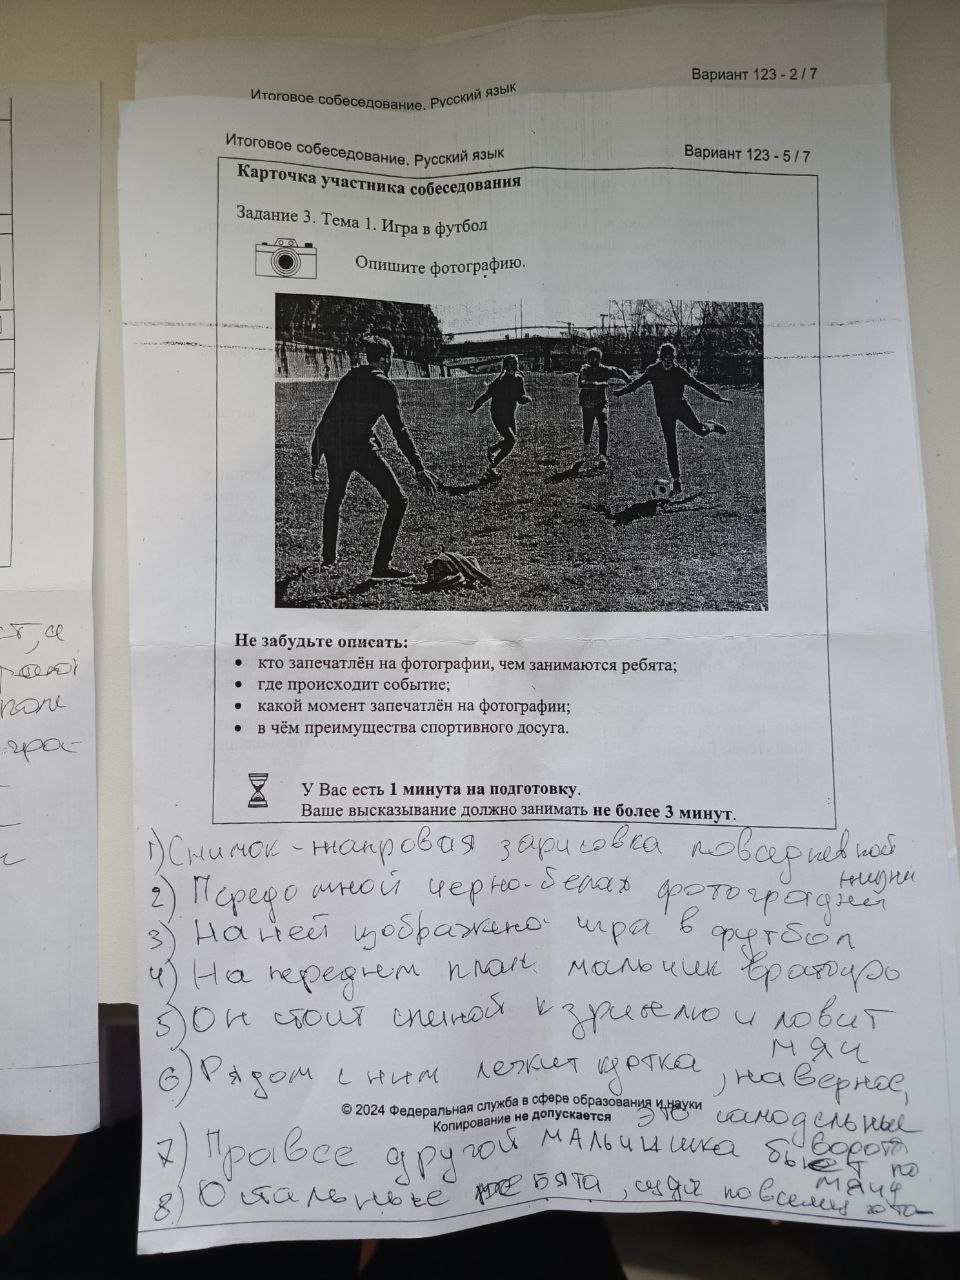 Итоговое собеседование. Русский язык Вариант 123 - 2 / 7
Итоговое собеседование. Русский язык Вариант 123 - 5 / 7
Карточка участника собеседования
Задание 3. Тема 1. Игра в футбол
Опишите фотографию.
Не забудьте описать:
• кто запечатлён на фотографии, чем занимаются ребята;
• где происходит событие;
• какой момент запечатлён на фотографии;
• в чём преимущества спортивного досуга.
У Вас есть 1 минута на подготовку.
Ваше высказывание должно занимать не более 3 минут.
1) Снимок - жанровая зарисовка повседневной
жизни
2) Передо мной черно-белая фотография
3) На ней изображено игра в футбол
4) На переднем план мальчик вратарь
5) Он стоит спиной к зрителю и ловит
мяч
6) Рядом с ним лежит куртка, наверное,
© 2024 Федеральная служба в сфере образования и науки
Копирование не допускается
это самодельные
ворота
7) Правее другой мальчишка бьет по
мячу
8) Остальные ребята, судя по всему